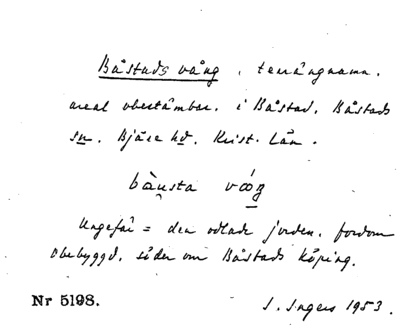 Båstads vång, terrängnamn.
areal obestämbar. i Båstad, Båstads
sn. Bjäre hd. Krist. län.
båusta vǻŋ
Ungefär = den odlade jorden, fordom
obebyggd, söder om Båstads köping.
Nr 5198. I. Ingers 1953.